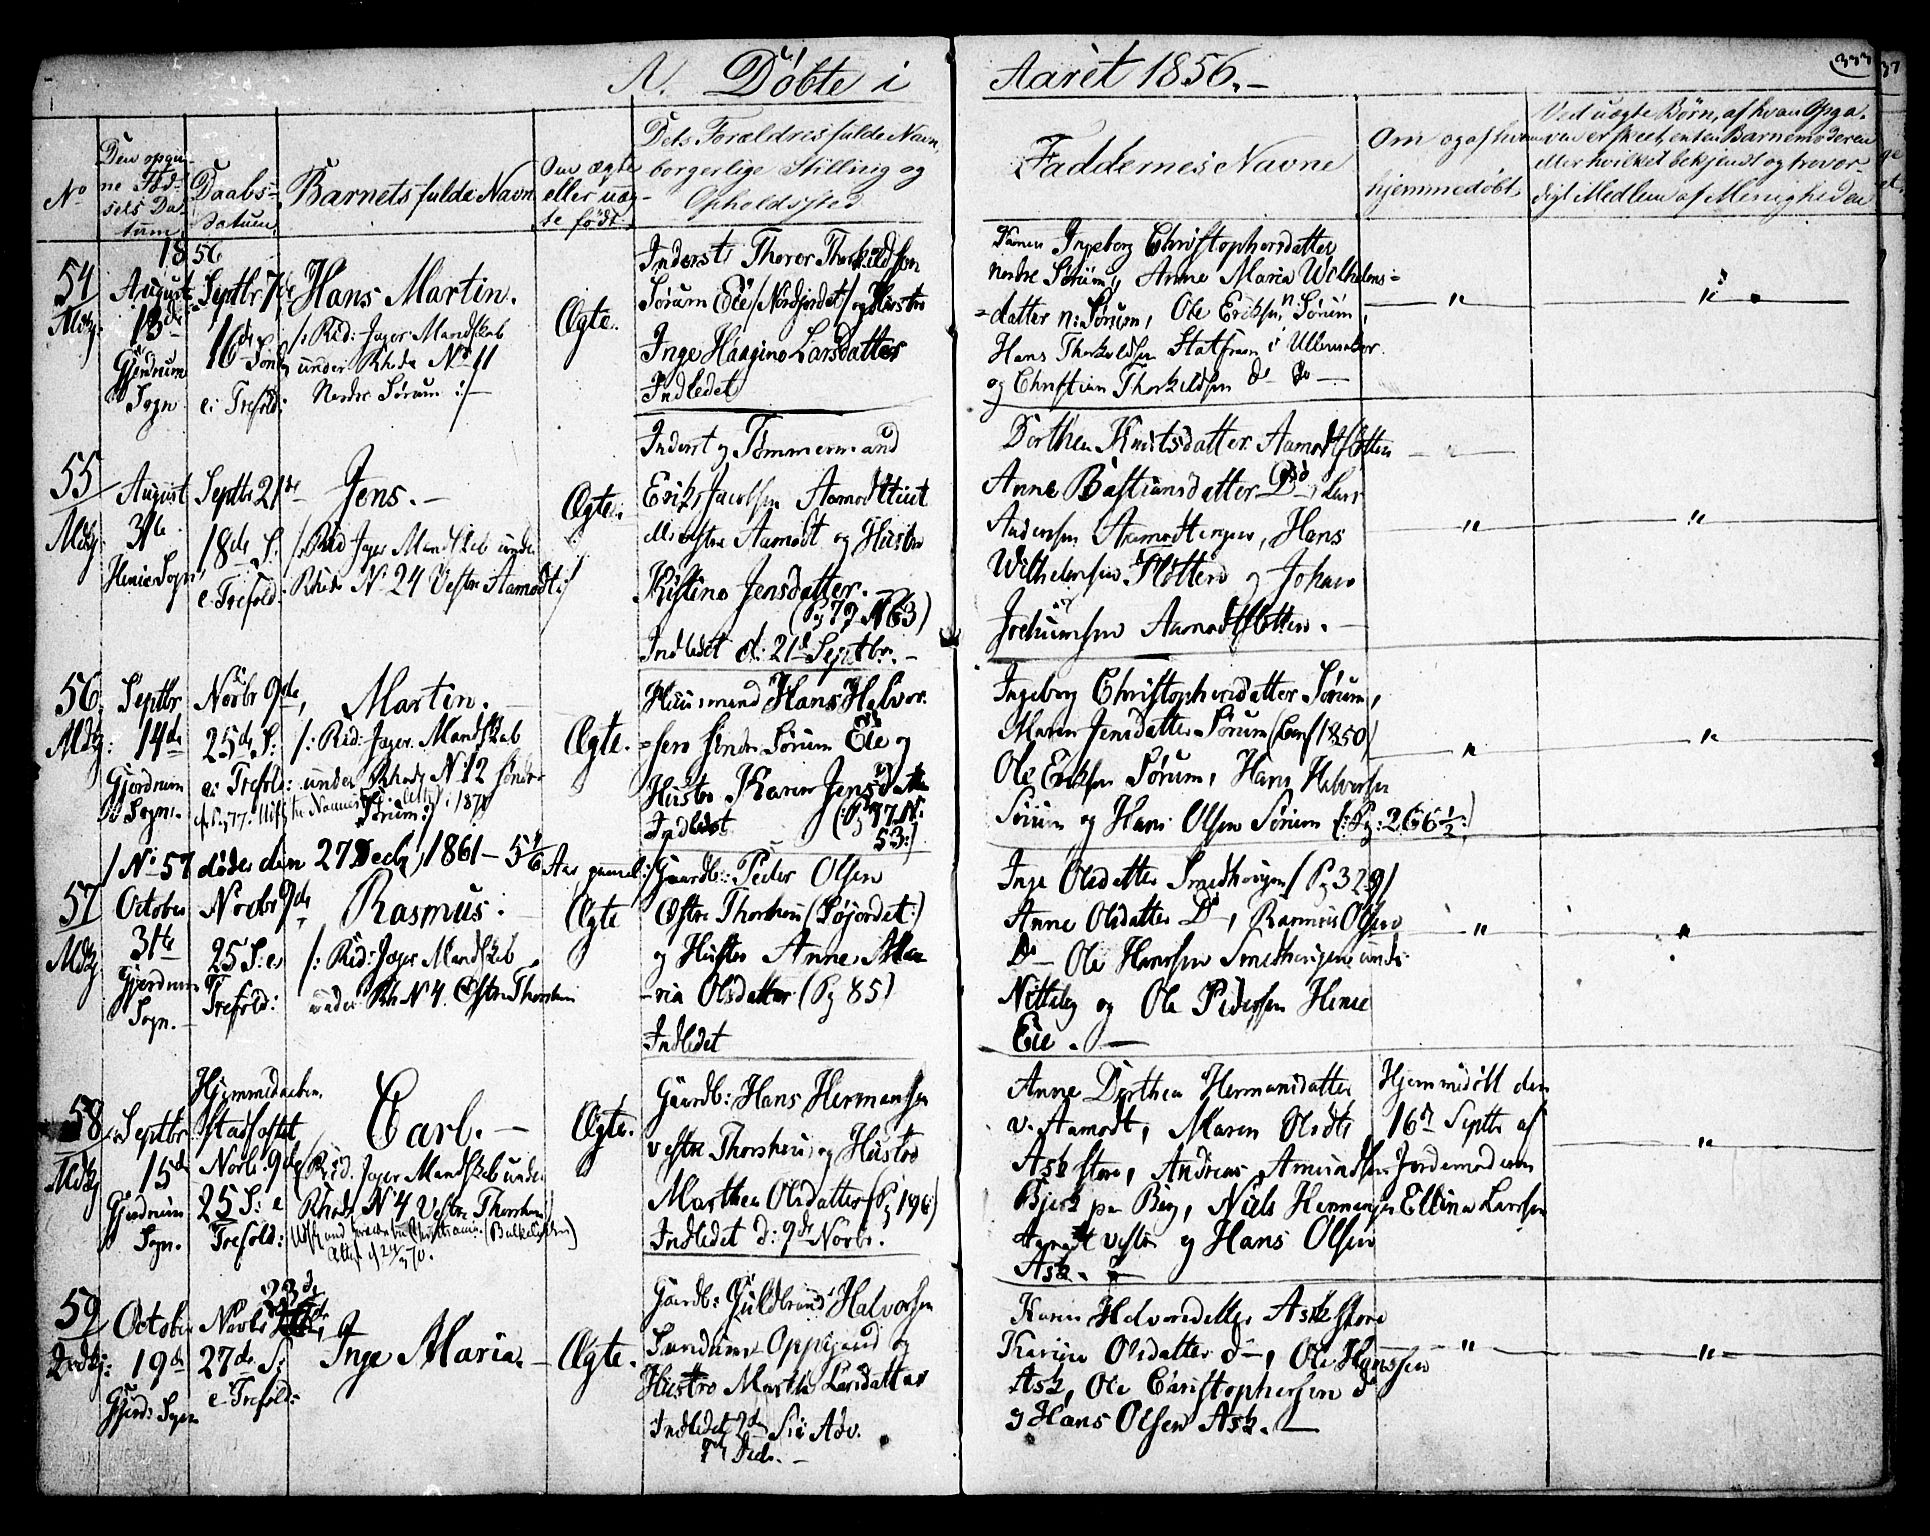 A. Döbte i Aaret 1856.
333
No
Den opgivne Fødselsdatum
Daabsdatum
Barnets fulde Navn
Om ægte eller uægte født.
Dets Forældres fulde Navn, borgerlige Stilling og Opholdssted
Faddernes Navne
Om og af hvem hjemmedøbt
Ved uægte Børn, af hvem Opgaven er skeet, enten Barnemoderen eller hvilket bekjendt og troværdigt Medlem af Menigheden
1856
54
August
13de
Gjerdrum
Sogn
Septbr 7de
16de Sønd.
e: Trefold:
Hans Martin.
/: Rid: Jæger Mandskab
under Rhode No 11
Nordre Sørum :/
Ægte.
Inderst Thorer Thorkildsen
Sørum Eie /Nordjordet/ og Hustro
Inge Haagine Larsdatter
Indledet
Ingeborg Christophersdatter
nordre Sørum, Anne Maria Wilhelms=
=datter n: Sørum, Ole Eriksen n: Sørum,
Hans Thorkildsen
og Christian Thorkildsen do do
"
"
55
August
31te
Henie Sogn
Septbr 21de
18de S:
e. Trefold:
Jens.
/: Rid Jæger Mandskab under
Rhode No 24 Vestre Aamodt :/
Ægte.
Inderst og Tømmermand
Erik Jacobsen
vestre Aamodt og Hustro
Kistine Jensdatter.
(Pg 79 No 63)
Indledet d: 21de Septbr.
Dorthea Knutsdatter Aamodtflotten
Anne Bastiansdatter Do, Lars
Andersen Aamodtengen, Hans
Wilhelmsen Flotten og Johan
Jochumsen Aamodtflotten.
"
"
56
Septbr
14de
Gjerdrum
Sogn.
Novbr 9de,
25de S:
e: Trefold:
Martin.
/: Rid: Jæger Mandskab
under Rhode No 12 søndre
Sørum :/
Ægte.
Huusmand Hans Halvor
=sen søndre Sørum Eie og
Hustro Karen Jensdatter
(: Pg 37 No
53 :)
Indledet
Ingeborg Christophersdatter Sørum,
Maren Jensdatter Sørum (Conf 1850)
Ole Eriksen Sørum, Hans Halvorsen
Sørum og Hans Olsen Sørum (: Pg: 266 1/2 :)
"
"
/No 57 døde den 27 Decbr, 1861 – 5 1/6 Aar gammel :/
57
October
31te
Gjerdrum
Sogn.
Novbr 9de
25 S: e
Trefold:
Rasmus.
/: Rid: Jæger Mandskab
under Rh No 4. Østre Thorshau
Ægte
Gaardb: Peder Olsen
Østre Thorshau (Søjordet :)
og Hustro Anne Ma
=ria Olsdatter (Pg 85)
Indledet
Inge Olsdatter Smedhougen / Pg 329/
Anne Olsdatter Do, Rasmus Olsen
Do – Ole Hanssen Smedhougen under
Nittebg og Ole Pedersen Henie
Eie.
"
"
58
Septbr
15de
Gjerdrum
Sogn.
Hjemmedaaben
stadfæstet
Novbr. 9de
25 S: e
Trefold:
Carl.
(Rid. Jæger Mandskab under
Rhode No 4 Vestre Thorshau)
Ægte.
Gaardb: Hans Hermansen
vestre Thorshau, og Hustro
Marthea Olsdatter (Pg 196)
Indledet d: 9de Novbr.
Anne Dorthea Hermansdatter
v. Aamodt, Maren Olsdtr
Ask store, Andreas Amundsen
Bjerk paa Beg, Niels Hermansen
Aamodt vestre og Hans Olsen
Ask.
Hjemmedøbt den
16de Septbr af
Jordemoderen
Elline Larsen
"
59
October
19de
Gjerd: Sogn
Novbr 23de
27de S:
e Trefold:
Inge Maria.
Ægte.
Gaardb: Guldbrand Halvorsen
Sandum Oppegaard og
Hustro Marthe Larsdatter
Indledet 2den Sø: i Adv.
7de Decbr.
Karen Halvorsdatter Ask store
Karine Olsdatter do, Ole Hanssen
Ask, Ole Christophersen do
og Hans Olsen Ask.
"
"